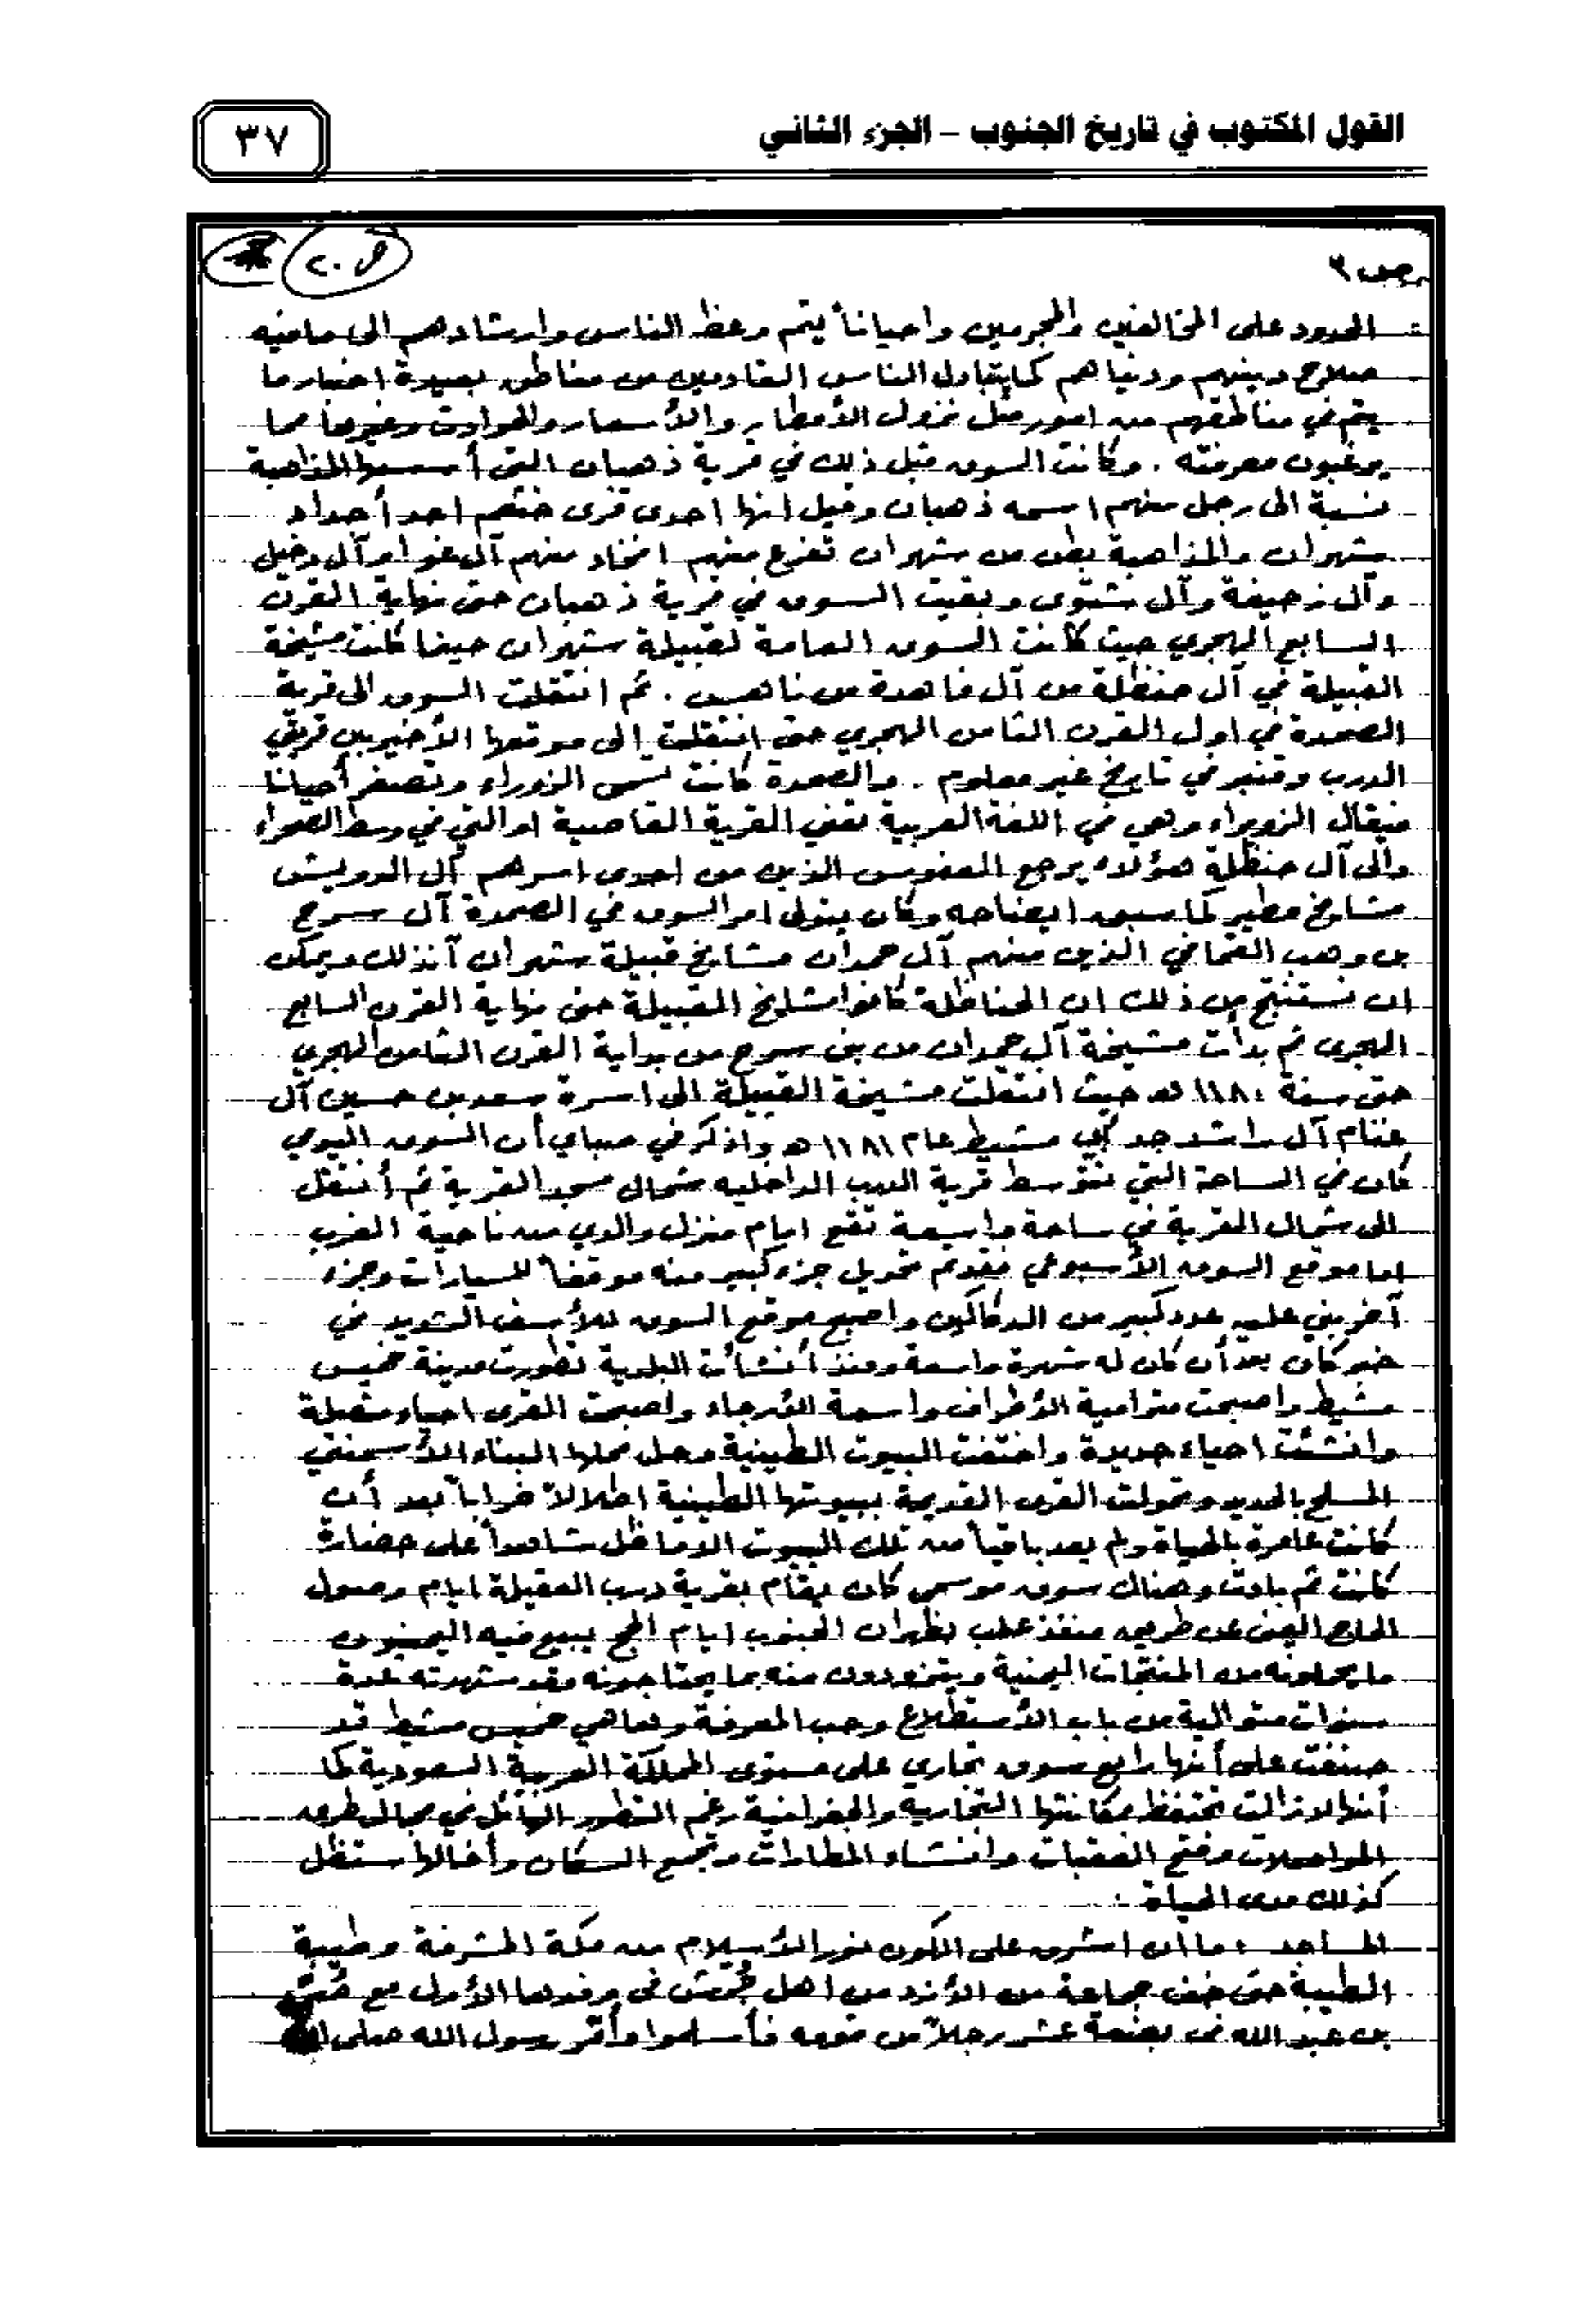 القول المكتوب في تاريخ الجنوب – الجزء الثاني
٣٧
ص ٩
ص ٢٠
الحدود على المخالفين والمجرمين واحياناً يتم وعظ الناس وارشادهم الى مافيه
صلاح دينهم ودنياهم كما يتبادل الناس القادمين من مناطق بعيدة اخبار ما
يتم في مناطقهم من امور مثل نزول الأمطار والأسعار والحوادث وغيرها مما
يرغبون معرفته . وكانت السوق قبل ذلك في قرية ذهبان التي أسسها المذاهبة
نسبة الى رجل منهم اسمه ذهبان وقيل انها احدى قرى خثعم احد أجداد
شهران والمذاهبة بطن من شهران تفرع منهم افخاذ منهم آل غوا وآل دخيل
وآل زحيفة وآل شتوى وبقيت السوق في قرية ذهبان حتى نهاية القرن
السابع الهجري حيث كانت السوق العامة لقبيلة شهران حينما كانت مشيخة
القبيلة في آل حنظلة من آل فاهدة من ناهس . ثم انتقلت السوق الى قرية
الصمدة في اول القرن الثامن الهجري حتى انتقلت الى موقعها الأخير بين قريتي
الدرب وقنبر في تاريخ غير معلوم . والصمدة كانت تسمى الزوراء وتصغر أحيانا
فيقال الزويراء وهي في اللغة العربية تعني القرية القاصية او التي في وسط الصحراء
والى آل حنظلة هؤلاء يرجع العفوس الذين من احدى اسرهم آل الدويش
مشايخ مطير كما سبق ايضاحه وكان يتولى امر السوق في الصمدة آل سرح
بن وهب القماضي الذين منهم آل حمدان مشايخ قبيلة شهران آنذاك ويمكن
ان نستنتج من ذلك ان الحناظلة كانوا مشايخ القبيلة حتى نهاية القرن السابع
الهجري ثم بدأت مشيخة آل حمدان من بني سرح من بداية القرن الثامن الهجري
حتى سنة ١١٨٠ هـ حيث انتقلت مشيخة القبيلة الى اسرة سعد بن حسين آل
غنام آل راشد جد أبي مشيط عام ١١٨١ هـ واذكر في صباي أن السوق اليومي
كان في الساحة التي تتوسط قرية الدرب الداخليه شمال مسجد القرية ثم أنتقل
الى شمال القرية في ساحة واسعة تقع امام منزل والدي من ناحية الغرب
اما موقع السوق الأسبوعي فقد تم تحويل جزء كبير منه موقفاً للسيارات وجزء
آخر بني عليه عدد كبير من الدكاكين واصبح موقع السوق للأسف الشديد في
خبر كان بعد أن كان له شهرة واسعة ومنذ أنشأت البلدية تطورت مدينة خميس
مشيط واصبحت مترامية الأطراف واسعة الأرجاء واصبحت القرى احياء متصلة
وانشئت احياء جديدة واختفت البيوت الطينية وحل محلها البناء الأسمنتي
المسلح بالحديد وتحولت القرى القديمة ببيوتها الطينية اطلالاً خراباً بعد أن
كانت عامرة بالحياة ولم يعد باقياً من تلك البيوت الا ما ظل شاهداً على حضارة
كانت ثم بادت وهناك سوق موسمي كان يقام بقرية درب العقيلة ايام وصول
الحاج اليمني عن طريق منفذ علب بظهران الجنوب ايام الحج يبيع فيه اليمنيون
ما يحملونه من المنتجات اليمنية ويتزودون منه بما يحتاجونه وقد شهدته عدة
سنوات متوالية من باب الأستطلاع وحب المعرفة وها هي خميس مشيط قد
صنفت على أنها رابع سوق تجاري على مستوى المملكة العربية السعودية كما
أنها لا زالت تحتفظ بمكانتها التجارية والجغرافية رغم التطور الهائل في مجال طرق
المواصلات وفتح العقبات وانشاء المطارات وتجمع السكان وأخالها ستظل
كذلك مدى الحياة .
المساجد : ما ان اشرق على الكون نور الأسلام من مكة المشرفة وطيبة
الطيبة حتى خف جماعة من الأزد من اهل جُرَش في وفدها الأول مع صُرَد
بن عبد الله في بضعة عشر رجلاً من قومه فأسلموا وأمّر رسول الله صلى الله